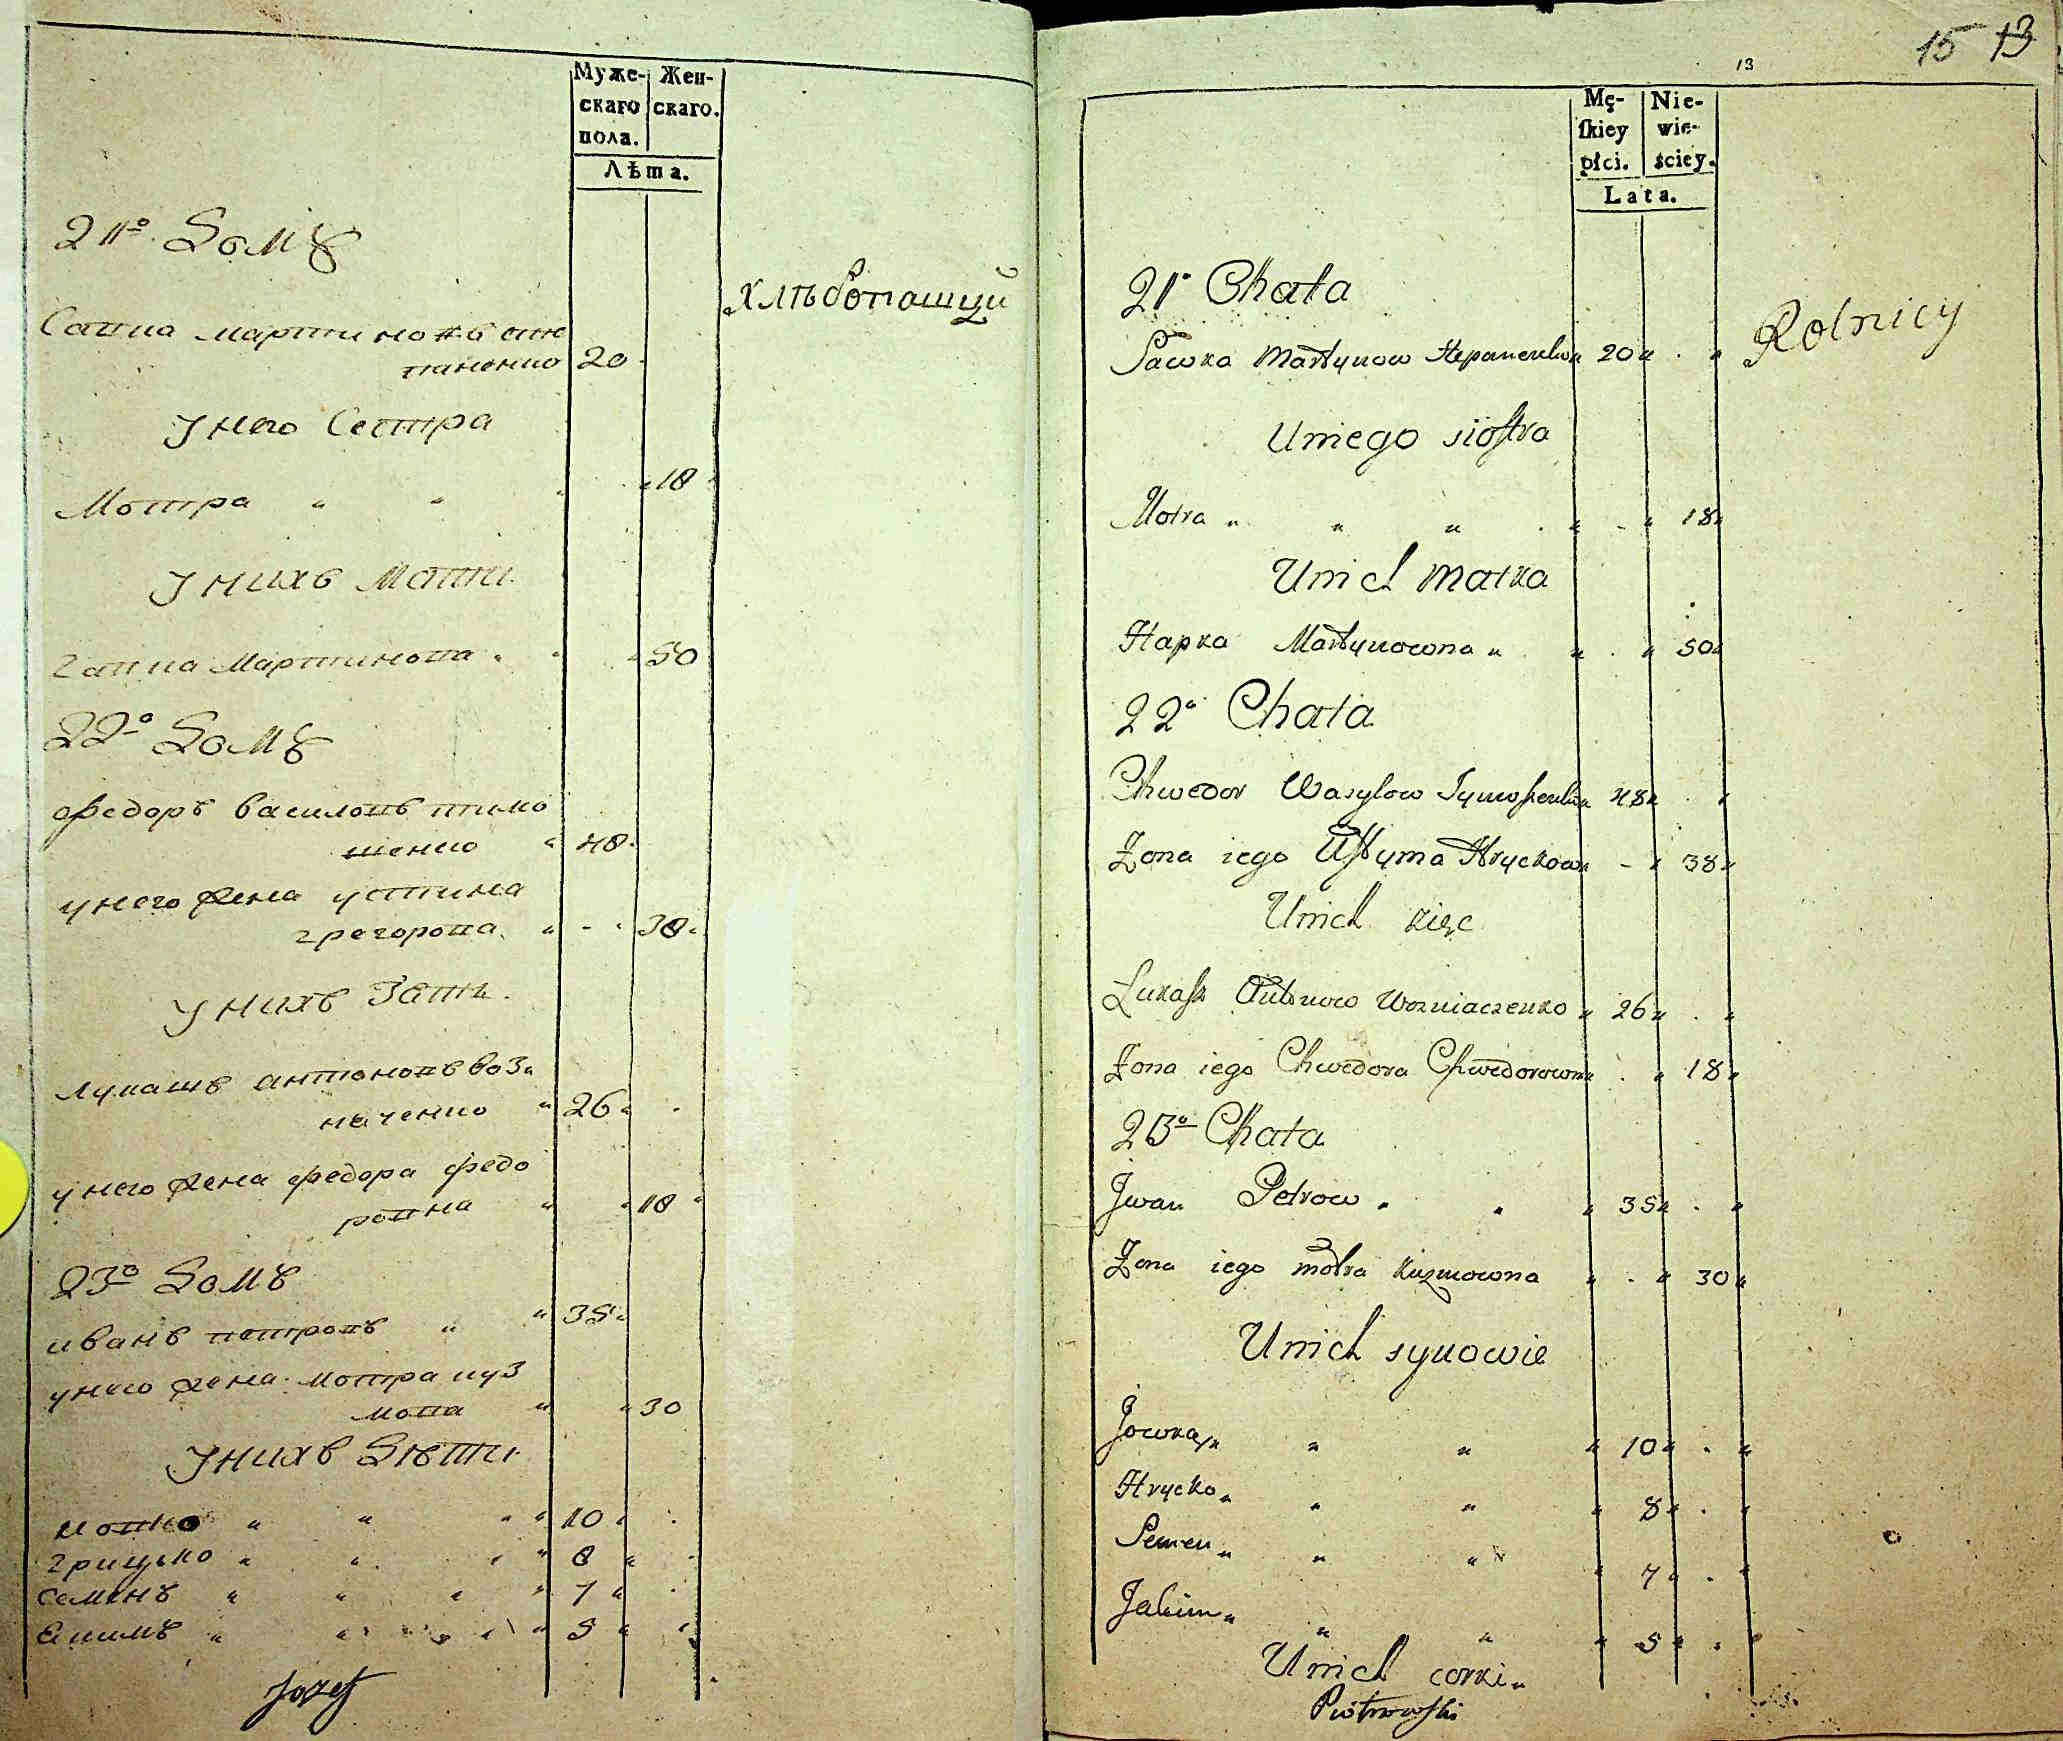 Муже-
скаго
пола.
Жен-
скаго.
Лѣта.
21º Домъ
хлѣбопашцй
Савка мартиновъ сте
паненко 20
У него Сестра
Мотра " " 18
У нихъ Матки
Гапка Мартинова " 50
22º Домъ
Федоръ василовъ тимо
шенко " 48
у него жена устина
грегорова " - " 38
У нихъ Зать
лукашъ антоновъ воз
наченко " 26 " .
у него жена федора федо
ровна " " 18 "
23º Домъ
иванъ петровъ " " 35 "
у него жена мотра куз
мова " " 30
У нихъ Дѣти
" " " 10 " .
грицько " " " 8 " .
семенъ " " " 7 " .
екимъ " " " 5 " "
Jozef
15 13
13
Mę-
ſkiey
płci.
Nie-
wie-
ściey.
Lata.
21º Chata
Rolnicy
Sawka Martynow Stepanenko " 20 " . "
Uniego siostra
Motra " " " " - " 18 "
Unich Matka
Hapka Martynowna " " . " 50 "
22º Chata
Chwedor Wasylow Tymoszenko " 48 " . "
Zona iego Ustyma Hryckowa " - " 38 "
Unich zięc
Łukasz Antonow Wozniaczenko " 26 " . "
Zona iego Chwedora Chwedorowna . " 18 "
23º Chata
Jwan Petrow " " " 35 " . "
Zona iego motra kuzmowna " . " 30 "
Unich synowie
Jowka " " " " 10 " . "
Hrycko " " " " 8 " . "
Semen " " " " 7 " . "
Jakim " " " " 5 " . "
Unich corki "
Piotrowski